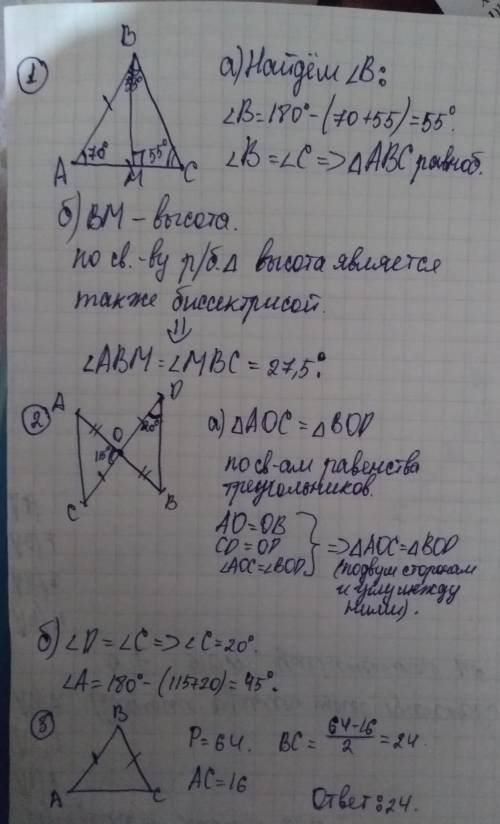 1
B
A
70°
M
55°
C
а) Найдём ∠B:
∠B=180°-(70+55)=55°.
∠B=∠C=>△ABC равноб.
б) BM – высота.
по св.-ву р/б.△ высота является
также биссектрисой.
⇓
∠ABM=∠MBC=27,5°.
2
A
D
O
115°
20°
C
B
а) △AOC=△BOD
по св-ам равенства
треугольников.
AO=OB
CD=OD
∠AOC=∠BOD
=>△AOC=△BOD
(по двум сторонам
и углу между
ними).
б) ∠D=∠C=>∠C=20°.
∠A=180°-(115+20)=45°.
3
B
A
C
P=64.
AC=16
BC=64-16/2=24.
Ответ: 24.